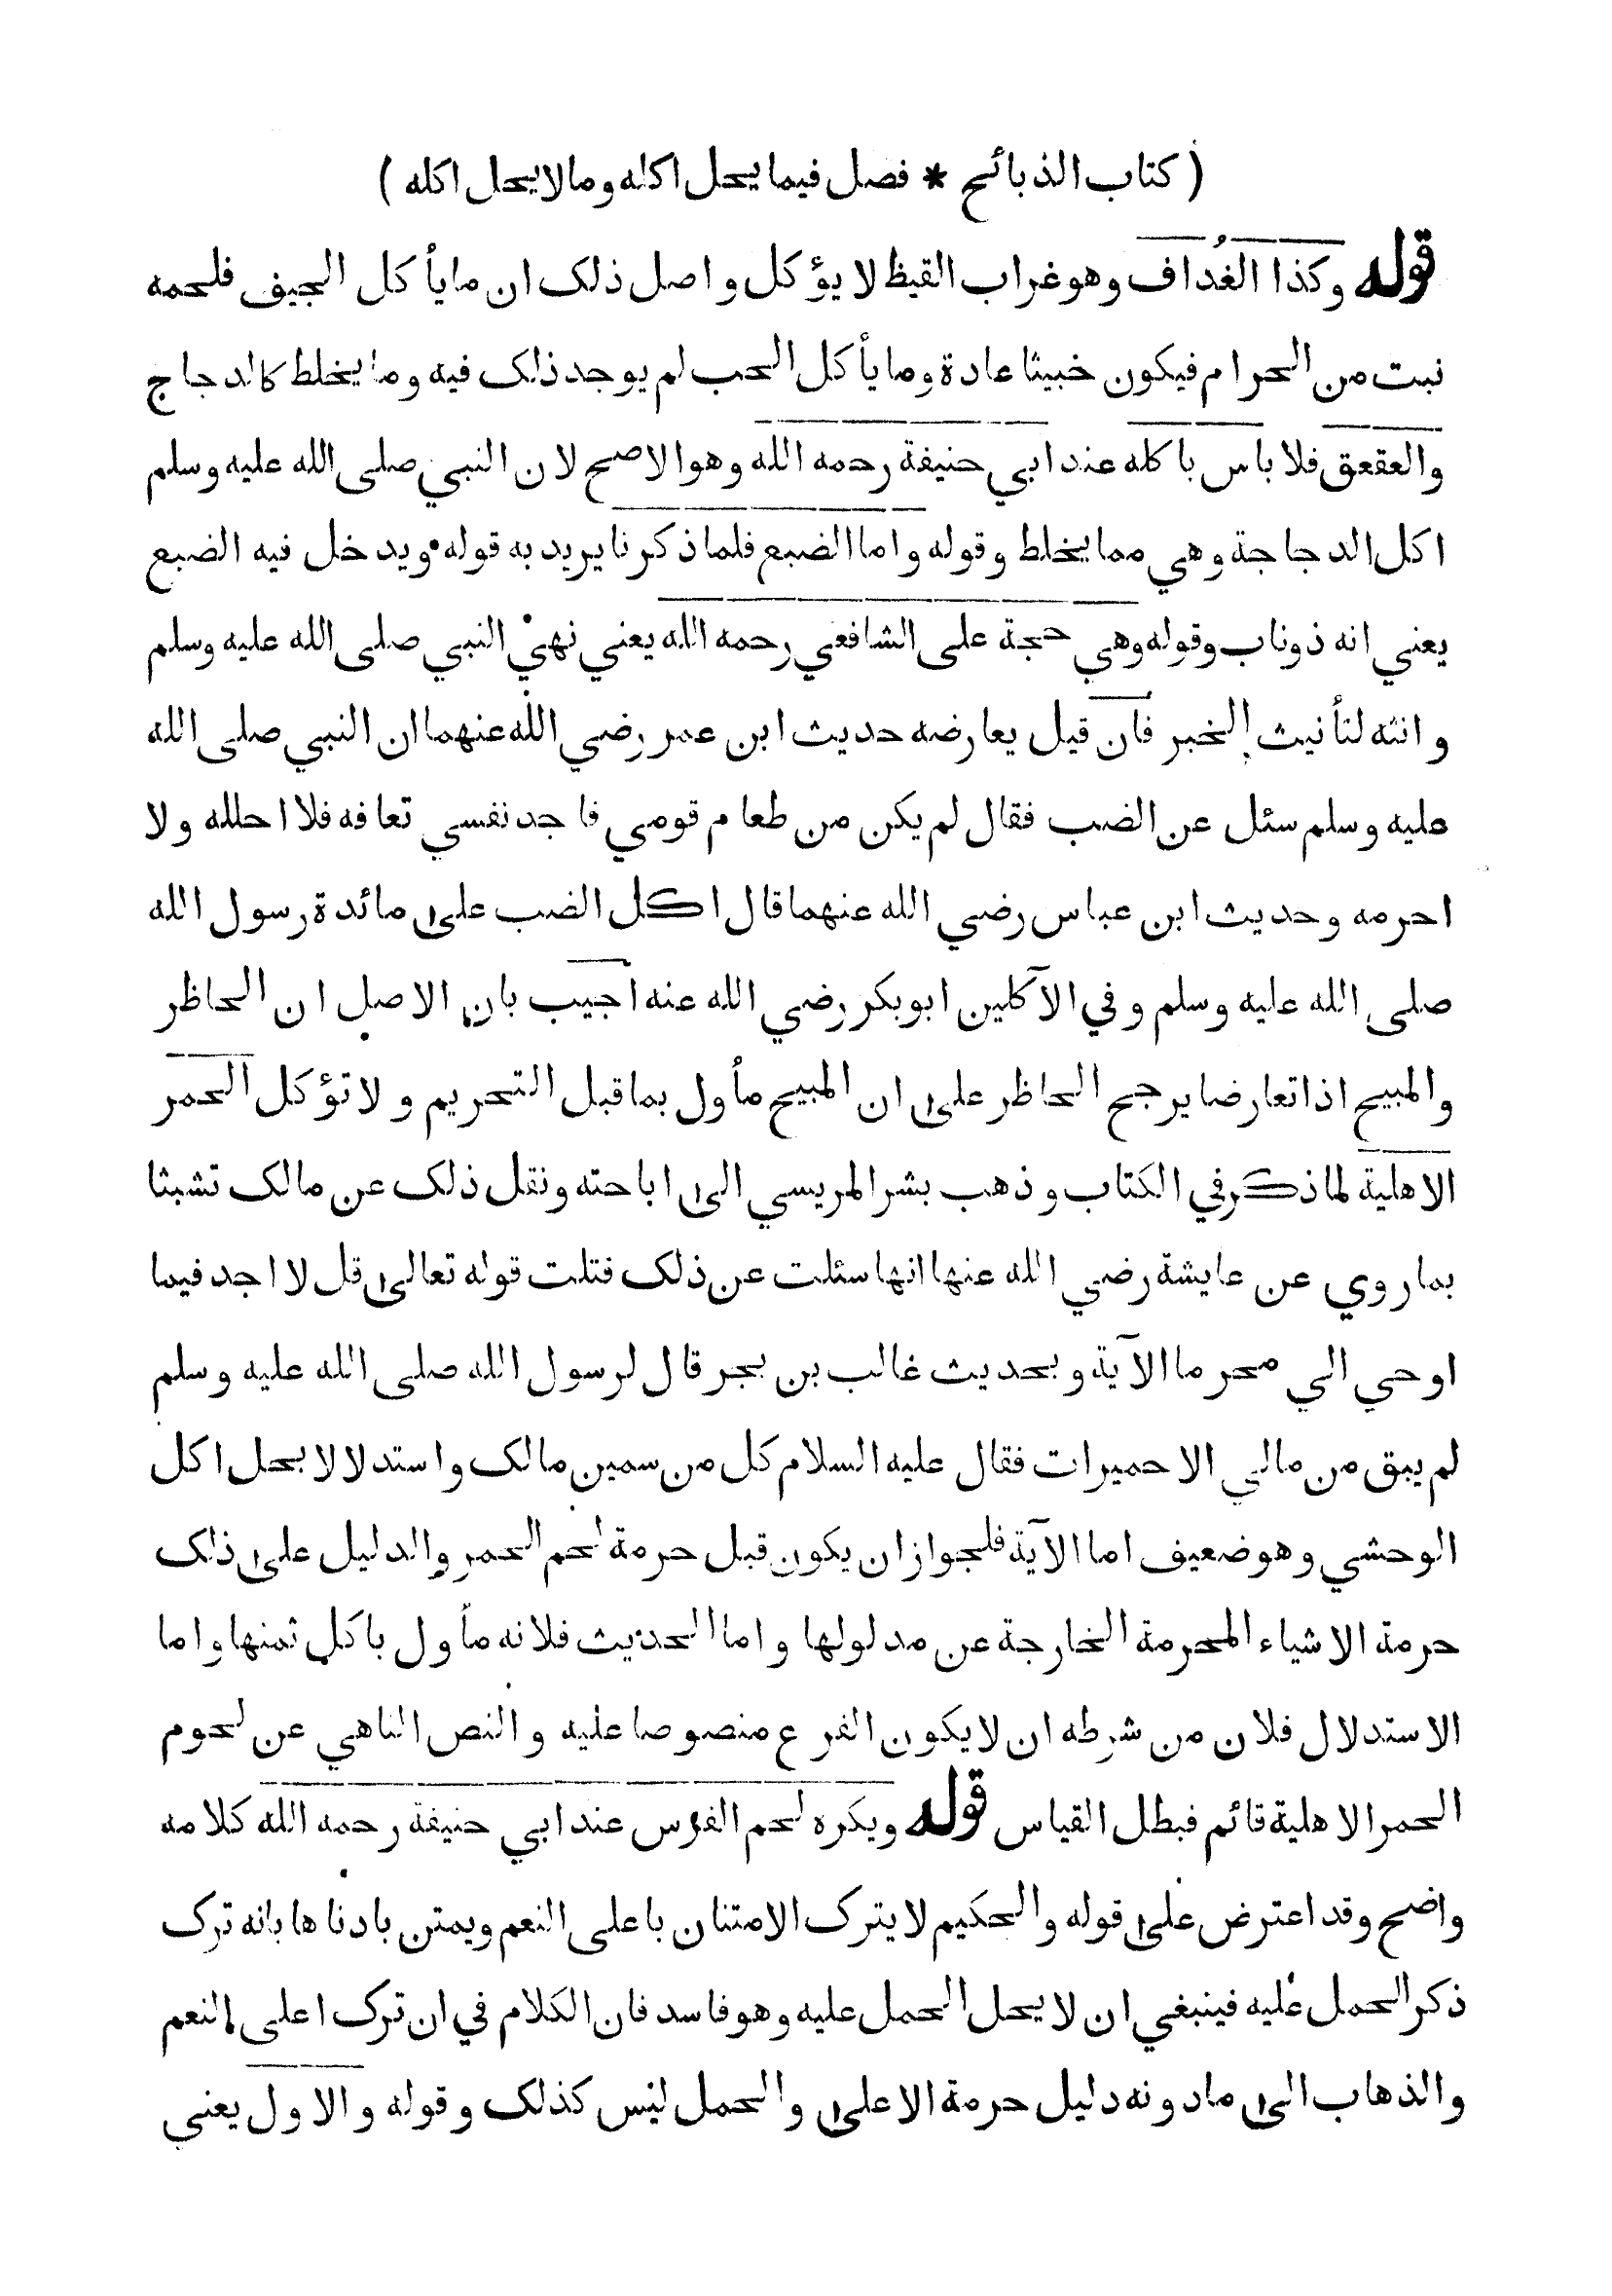 ( كتاب الذبائح * فصل فيما يحل اكله وما لا يحل اكله )
قوله وكذا الغُداف وهو غراب القيظ لا يؤكل واصل ذلك ان ما يأكل الجيف فلحمه
نبت من الحرام فيكون خبيثا عادة وما يأكل الحب لم يوجد ذلك فيه وما يخلط كالدجاج
والعقعق فلا باس باكله عند ابي حنيفة رحمه الله وهو الاصح لان النبي صلى الله عليه وسلم
اكل الدجاجة وهي مما يخلط وقوله واما الضبع فلما ذكرنا يريد به قوله ويدخل فيه الضبع
يعني انه ذو ناب وقوله وهي حجة على الشافعي رحمه الله يعني نهي النبي صلى الله عليه وسلم
وانثه لتأنيث الخبر فان قيل يعارضه حديث ابن عمر رضي الله عنهما ان النبي صلى الله
عليه وسلم سئل عن الضب فقال لم يكن من طعام قومي فاجد نفسي تعافه فلا احلله ولا
احرمه وحديث ابن عباس رضي الله عنهما قال اكل الضب على مائدة رسول الله
صلى الله عليه وسلم وفي الآكلين ابوبكر رضي الله عنه اجيب بان الاصل ان الحاظر
والمبيح اذا تعارضا يرجح الحاظر على ان المبيح مأول بما قبل التحريم ولا تؤكل الحمر
الاهلية لما ذكر في الكتاب وذهب بشر المريسي الى اباحته ونقل ذلك عن مالك تشبثا
بما روي عن عايشة رضي الله عنها انها سئلت عن ذلك فتلت قوله تعالى قل لا اجد فيما
اوحي الي محرما الآية وبحديث غالب بن بجر قال لرسول الله صلى الله عليه وسلم
لم يبق من مالي الا حميرات فقال عليه السلام كل من سمين مالك واستدلالا بحل اكل
الوحشي وهو ضعيف اما الآية فلجواز ان يكون قبل حرمة لحم الحمر والدليل على ذلك
حرمة الاشياء المحرمة الخارجة عن مدلولها واما الحديث فلانه مأول باكل ثمنها واما
الاستدلال فلان من شرطه ان لا يكون الفرع منصوصا عليه والنص الناهي عن لحوم
الحمر الاهلية قائم فبطل القياس قوله ويكره لحم الفرس عند ابي حنيفة رحمه الله كلامه
واضح وقد اعترض على قوله والحكيم لا يترك الامتنان باعلى النعم ويمتن بادناها بانه ترك
ذكر الحمل عليه فينبغي ان لا يحل الحمل عليه وهو فاسد فان الكلام في ان ترك اعلى النعم
والذهاب الى ما دونه دليل حرمة الاعلى والحمل ليس كذلك وقوله والاول يعني